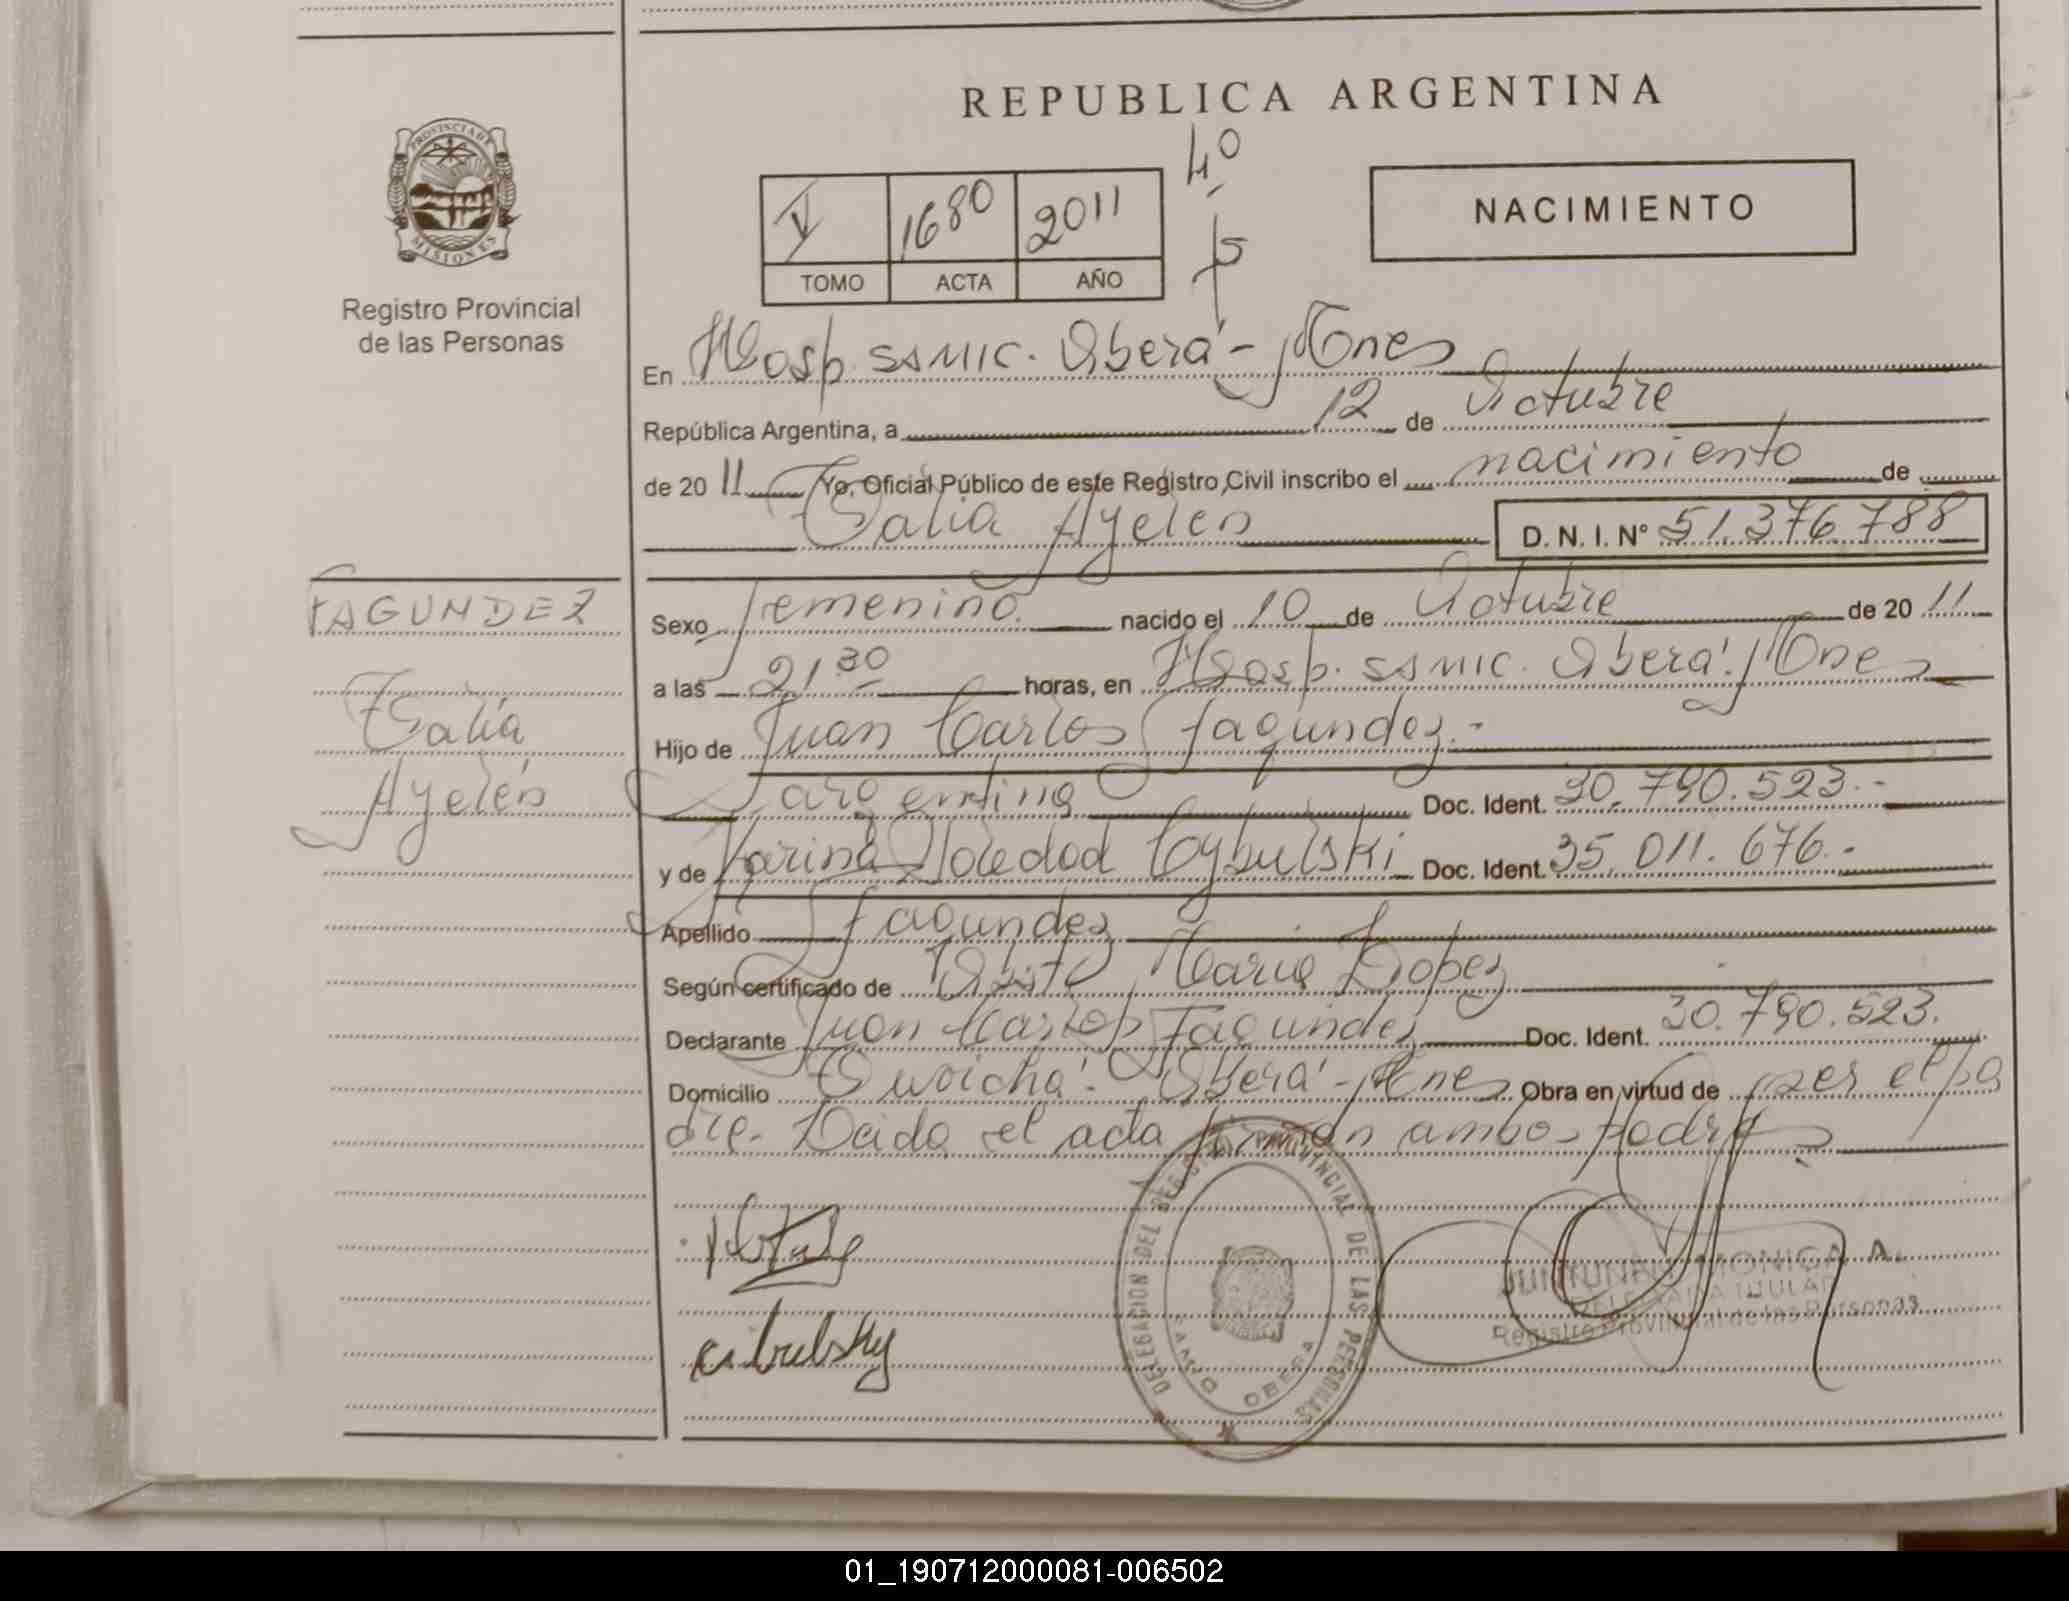 REPUBLICA ARGENTINA
PROVINCIA DE
MISIONES
Registro Provincial
de las Personas
V 1680 2011
TOMO ACTA AÑO
4º
NACIMIENTO
En Hosp. SAMIC. Oberá - Mnes
República Argentina, a 12 de Octubre
de 2011 Yo, Oficial Público de este Registro Civil inscribo el nacimiento de
Talía Ayelén D. N. I. Nº 51.376.788
FAGUNDEZ
Talía
Ayelén
Sexo femenino. nacido el 10 de Octubre de 2011
a las 21 30 horas, en Hosp. SAMIC. Oberá. Mnes
Hijo de Juan Carlos Fagundez.-
argentina Doc. Ident. 30.790.523.-
y de Karina Soledad Cybulski Doc. Ident. 35.011.676.-
Apellido Fagundez
Según certificado de Obste María Lopez
Declarante Juan Carlos Fagundez Doc. Ident. 30.790.523.
Domicilio Guaicha. Oberá - Mnes Obra en virtud de ser el pa
dre. Leida el acta firman ambos padres
DELEGACION DEL REGISTRO PROVINCIAL DE LAS PERSONAS
OBERA
MONICA A.
DELEGADA TITULAR
Registro Provincial de las Personas
01_190712000081-006502